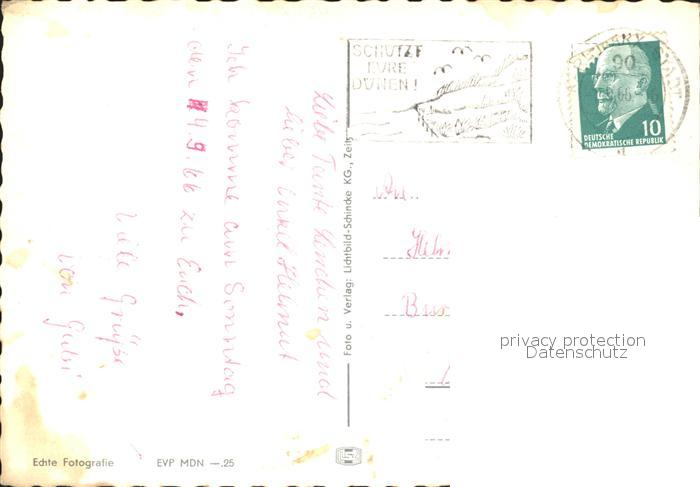 SCHÜTZE
EURE
DÜNEN!
90
66
10
DEUTSCHE
DEMOKRATISCHE REPUBLIK
Liebe Tante Lenchen und
Lieber Onkel Helmut
Ich komme am Sonntag
den 4.9.66 zu Euch,
Viele Grüße
von Gabi
Foto u. Verlag: Lichtbild-Schincke KG., Zeitz
An
Helm
privacy protection
Datenschutz
Echte Fotografie EVP MDN —.25